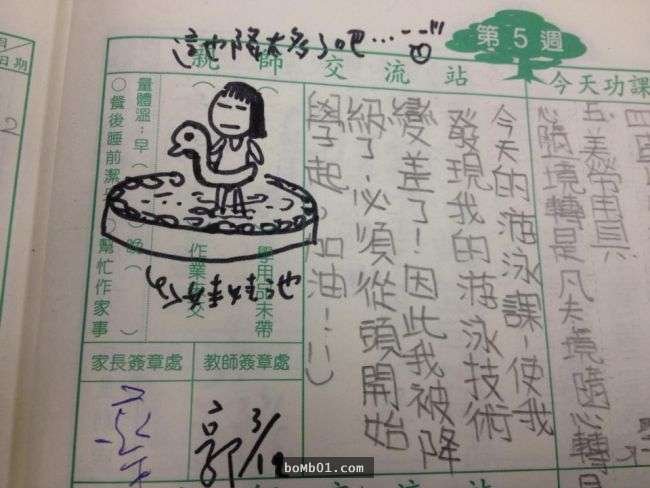 第5週
這也降太多了吧…
親師交流站
今天功課
五美勞用具
心隨境轉是凡夫境隨心轉
今天的游泳課,使我
發現我的游泳技術
變差了!因此我被降
級了,必須從頭開始
學起。加油!
學用品未帶
量體溫:早( 晚( )
○餐後睡前潔
幫忙作家事
日期
家長簽章處
教師簽章處
郭 3/12
親師交流站
boMb01.com